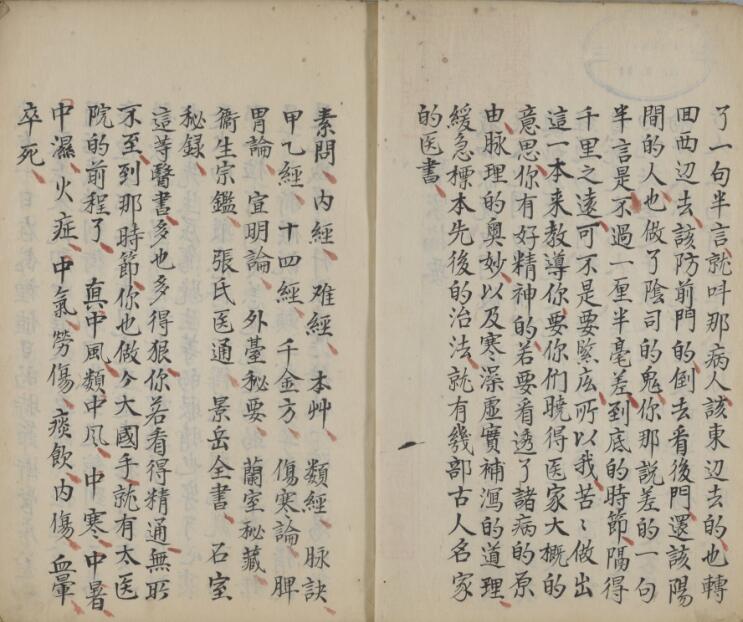 了一句半言就呌那病人該東辺去的也轉
囬西辺去該防前門的倒去看後門還該陽
間的人也做了陰司的鬼你那說差的一句
半言是不過一厘半毫差到底的時節隔得
千里之遠可不是要緊庅所以我苦〻做出
這一本来教導你要你们曉得医家大概的
意思你有好精神的若要看透了諸病的原
由脉理的奥妙以及寒澡虛實補瀉的道理
緩急標本先後的治法就有幾部古人名家
的医書
素問內經 难經 本艸 類經脉訣
甲乙經 十四經 千金方 傷寒論脾
胃論 宣明論外臺秘要 蘭室秘藏
衞生宗鑑 張氏医通 景岳全書 石室
秘録
這等醫書多也多得狠你若看得精通無所
不至到那時節你也做个大國手就有太医
院的前程了 真中風類中风中寒中暑
中濕火症中氣勞傷痰飲內傷 血暈
卒死